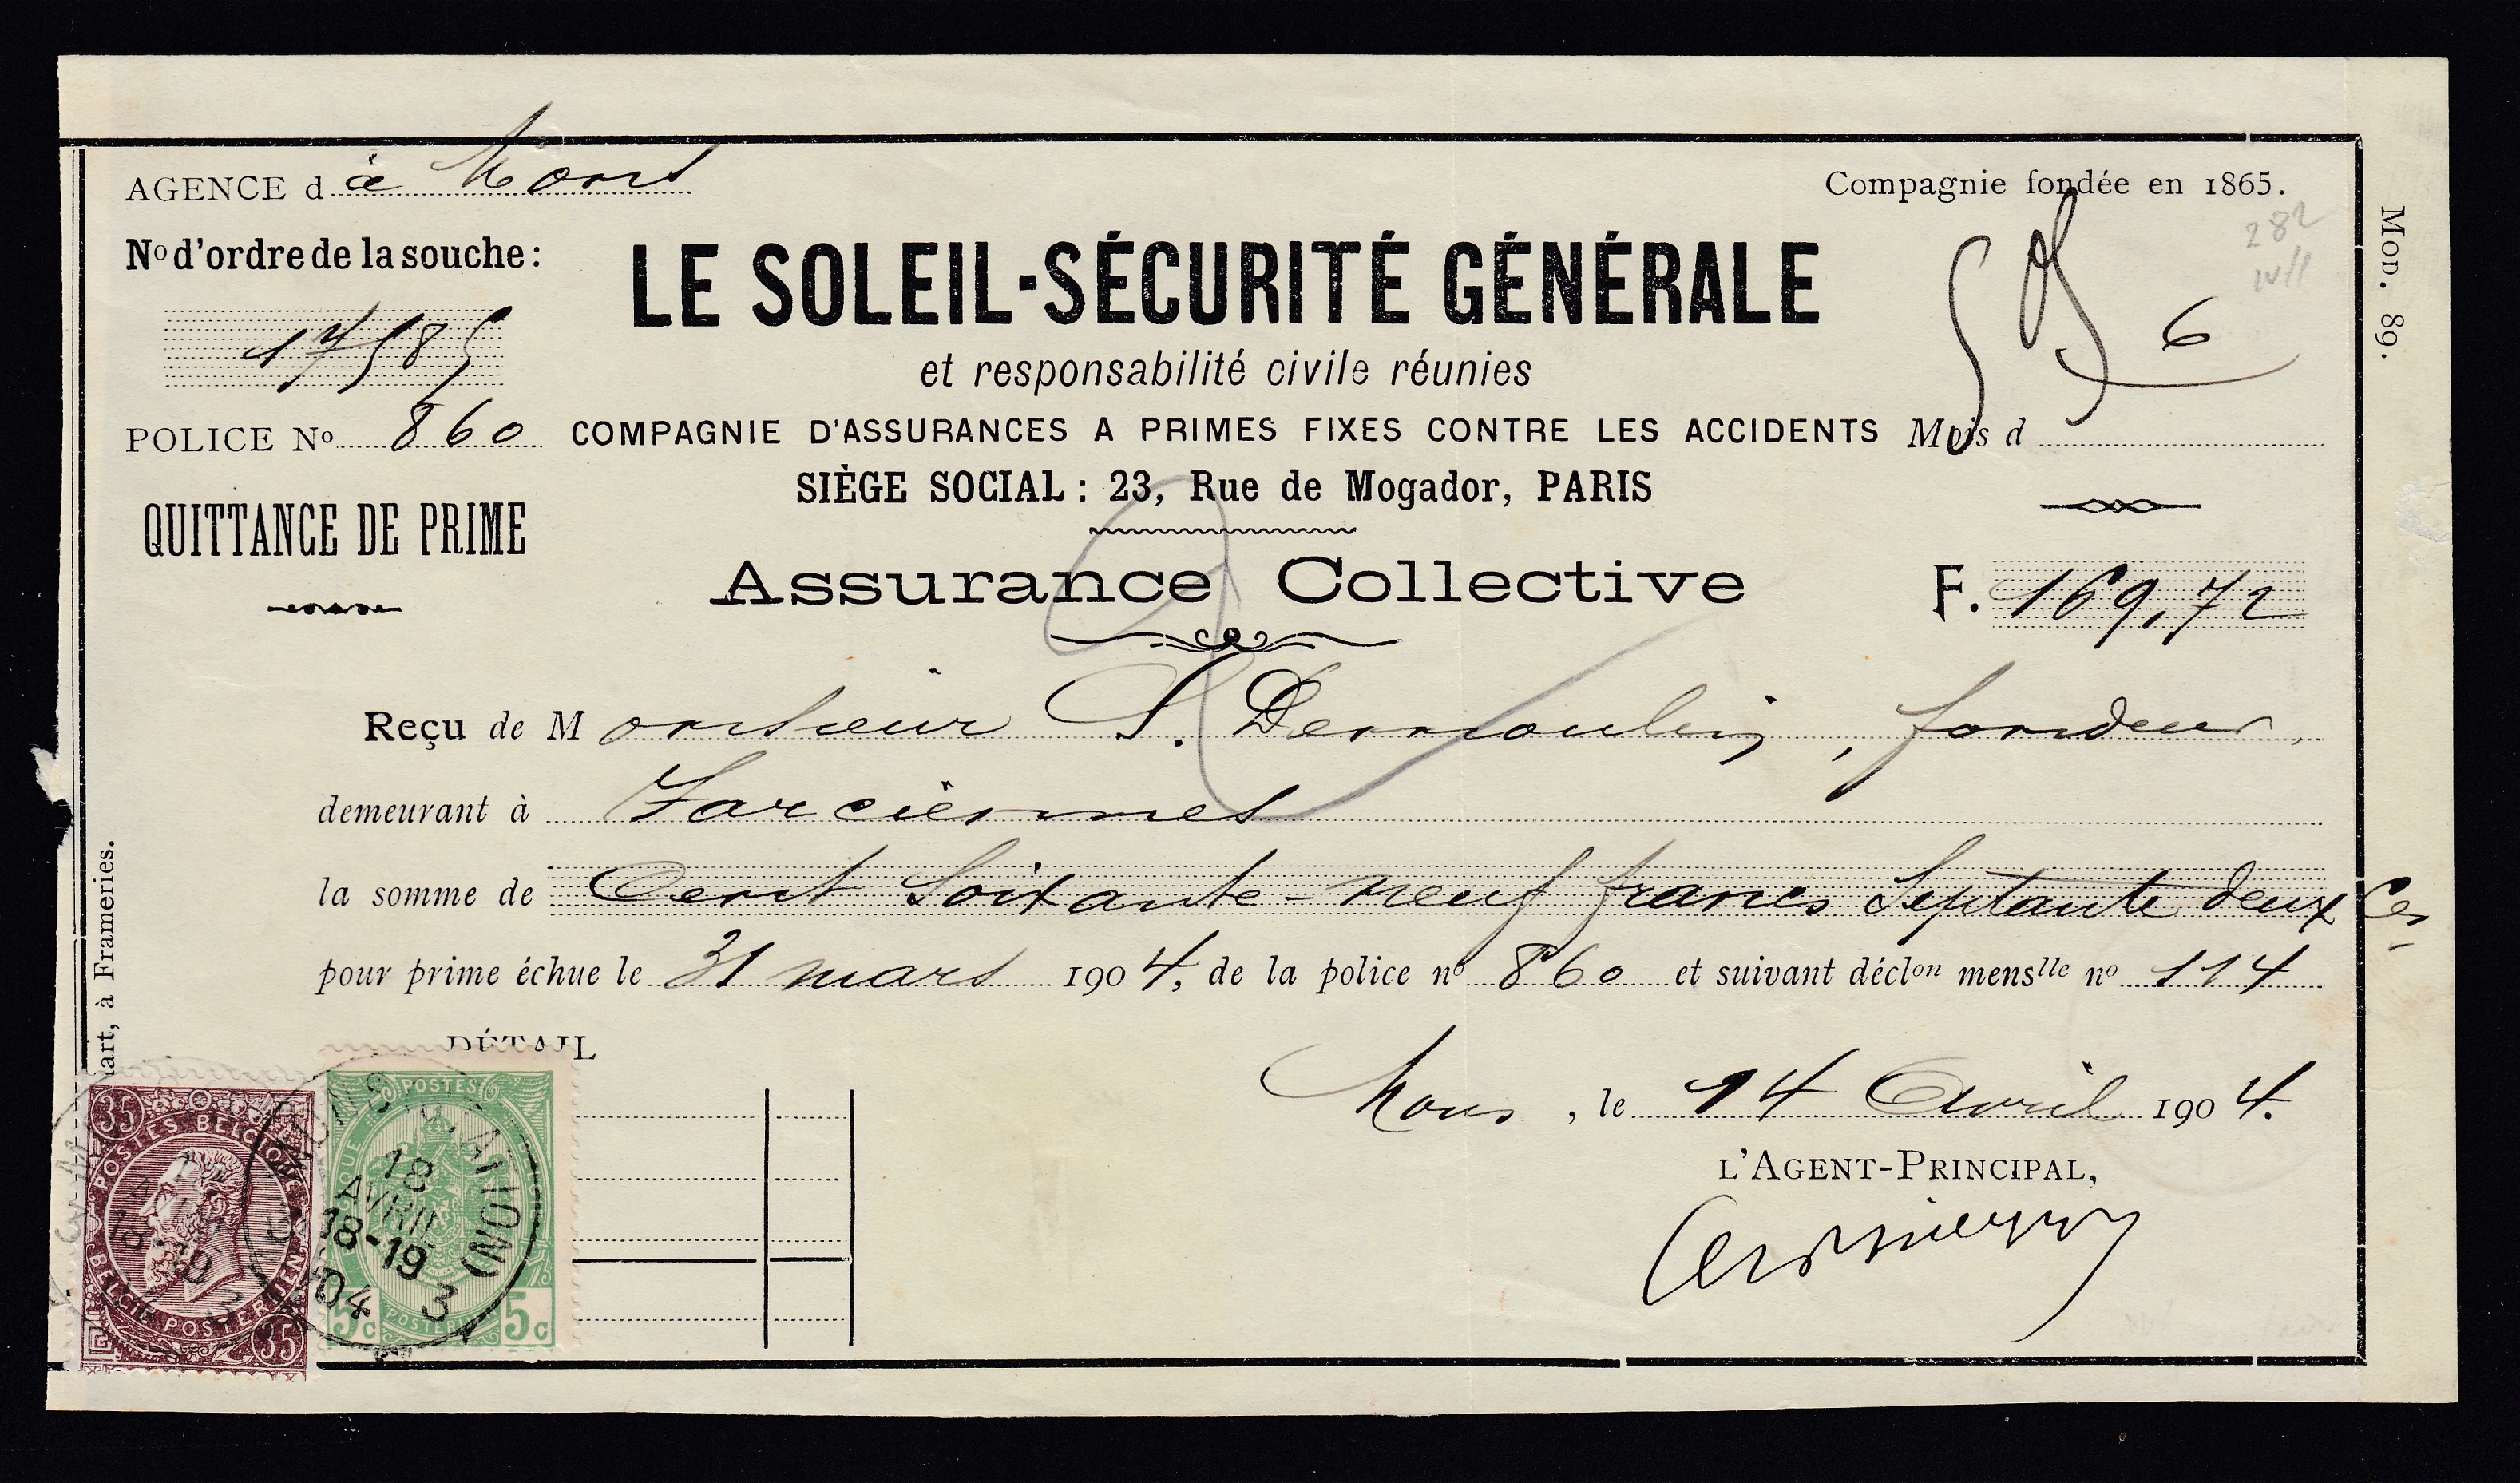 AGENCE d à Mons
Compagnie fondée en 1865.
Mod. 89.
282
No d'ordre de la souche:
17585
LE SOLEIL-SÉCURITÉ GÉNÉRALE
6
et responsabilité civile réunies
POLICE No 860
COMPAGNIE D'ASSURANCES A PRIMES FIXES CONTRE LES ACCIDENTS
Mois d
SIÈGE SOCIAL : 23, Rue de Mogador, PARIS
QUITTANCE DE PRIME
Assurance Collective
F. 169,72
Reçu de Monsieur S. Dermoulin, fondeur,
demeurant à Farciennes
la somme de Cent Soixante-neuf francs Septante deux Ces
pour prime échue le 31 mars 1904, de la police no 860 et suivant déclon menslle no 114
art, à Frameries.
DÉTAIL
Mons, le 14 Avril 1904.
L'AGENT-PRINCIPAL,
35
POSTES BELGIQUE
BELGIE POSTERIJEN
35
POSTES
5c
5c
MONS (STATION)
18
AVRIL
18-19
04
3